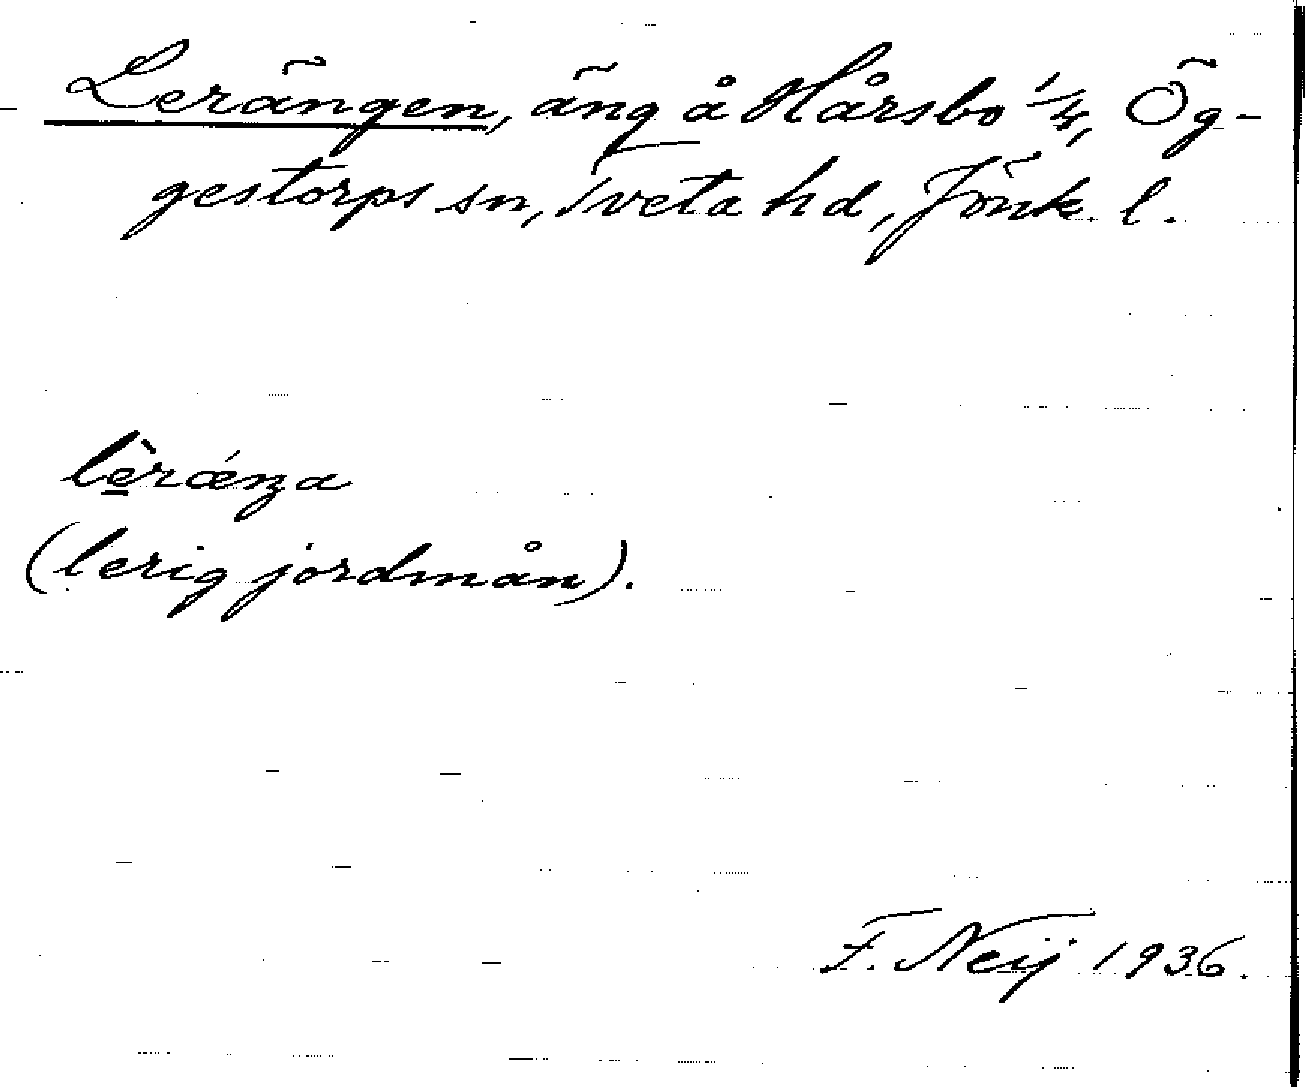 Lerängen, äng å Hårsbo 1/4, Ög-
gestorps sn, Tveta hd, Jönk. l.
lèrǽŋa
(lerig jordmån).
F. Neij 1936.